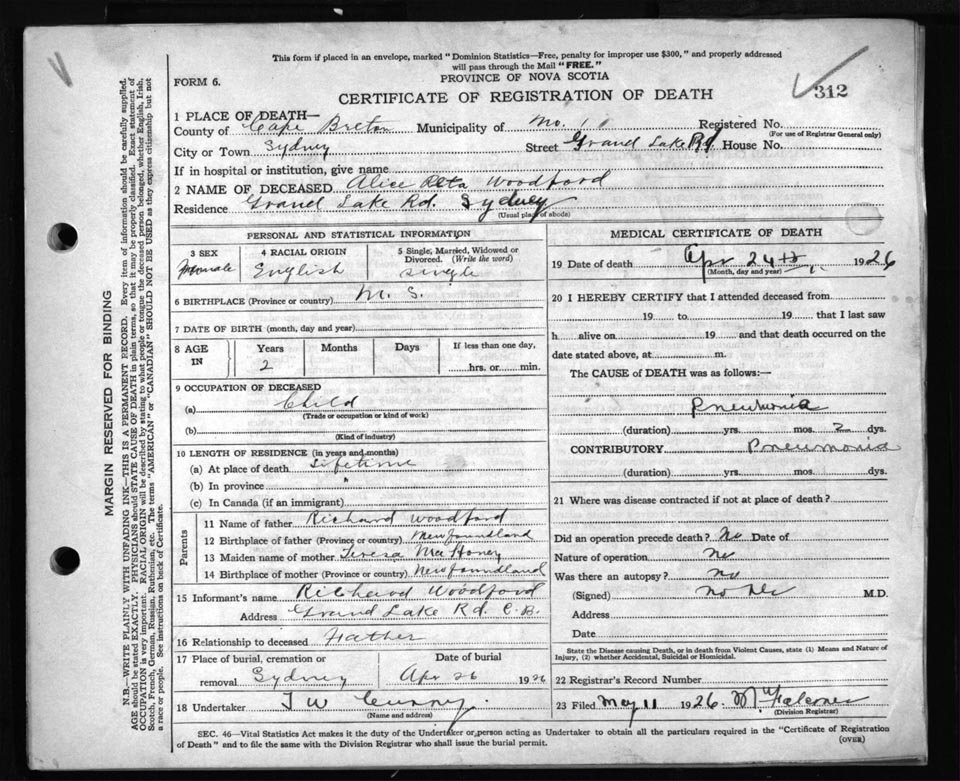 This form if placed in an envelope, marked "Dominion Statistics—Free, penalty for improper use $300," and properly addressed
will pass through the Mail "FREE."
FORM 6.
PROVINCE OF NOVA SCOTIA
312
CERTIFICATE OF REGISTRATION OF DEATH
1 PLACE OF DEATH—
County of Cape Breton Municipality of No. 11 Registered No.
(For use of Registrar General only)
City or Town Sydney Street Grand Lake Rd House No.
If in hospital or institution, give name
2 NAME OF DECEASED Alice Reta Woodford
Residence Grand Lake Rd. Sydney
(Usual place of abode)
PERSONAL AND STATISTICAL INFORMATION
3 SEX Female
4 RACIAL ORIGIN English
5 Single, Married, Widowed or Divorced. (Write the word) single
6 BIRTHPLACE (Province or country) N. S.
7 DATE OF BIRTH (month, day and year)
8 AGE IN Years 2 Months Days If less than one day, hrs. or min.
9 OCCUPATION OF DECEASED
(a) Child
(Trade or occupation or kind of work)
(b)
(Kind of industry)
10 LENGTH OF RESIDENCE (in years and months)
(a) At place of death Lifetime
(b) In province
(c) In Canada (if an immigrant)
Parents
11 Name of father Richard Woodford
12 Birthplace of father (Province or country) Newfoundland
13 Maiden name of mother Teresa MaHoney
14 Birthplace of mother (Province or country) Newfoundland
15 Informant's name Richard Woodford
Address Grand Lake Rd. C.B.
16 Relationship to deceased Father
17 Place of burial, cremation or removal Sydney
Date of burial Apr 26 1926
18 Undertaker T W Curry
(Name and address)
MEDICAL CERTIFICATE OF DEATH
19 Date of death Apr 24th 1926
(Month, day and year)
20 I HEREBY CERTIFY that I attended deceased from
19 to 19 that I last saw
h alive on 19 and that death occurred on the
date stated above, at m.
The CAUSE of DEATH was as follows:—
Pneumonia
(duration) yrs. mos. 2 dys.
CONTRIBUTORY Pneumonia
(duration) yrs. mos. dys.
21 Where was disease contracted if not at place of death?
Did an operation precede death? No Date of
Nature of operation No
Was there an autopsy? No
(Signed) No Dr M.D.
Address
Date
State the Disease causing Death, or in death from Violent Causes, state (1) Means and Nature of
Injury, (2) whether Accidental, Suicidal or Homicidal.
22 Registrar's Record Number
23 Filed May 11 1926.
(Division Registrar)
SEC. 46—Vital Statistics Act makes it the duty of the Undertaker or person acting as Undertaker to obtain all the particulars required in the "Certificate of Registration
of Death" and to file the same with the Division Registrar who shall issue the burial permit.
(OVER)
MARGIN RESERVED FOR BINDING
N.B.—WRITE PLAINLY WITH UNFADING INK—THIS IS A PERMANENT RECORD. Every item of information should be carefully supplied.
AGE should be stated EXACTLY. PHYSICIANS should STATE CAUSE OF DEATH in plain terms, so that it may be properly classified. Exact statement of
OCCUPATION is very important. RACIAL ORIGIN will be described by stating to what people or tongue the deceased person belonged, whether English, Irish,
Scotch, French, German, Russian, Ruthenian, etc. The terms "AMERICAN" or "CANADIAN" SHOULD NOT BE USED as they express citizenship but not
a race or people. See instructions on back of Certificate.